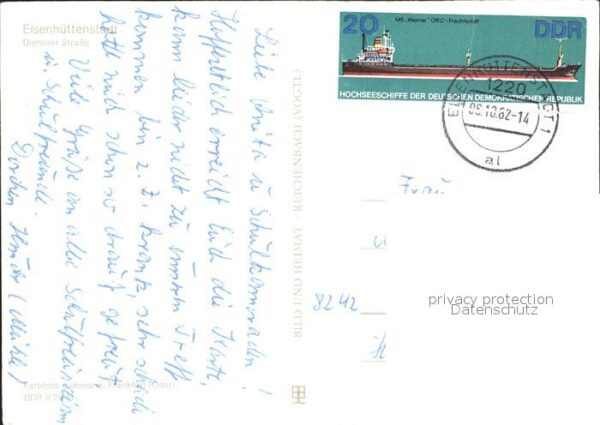 Eisenhüttenstadt
Diehloer Straße
Liebe Anita u. Schulkameraden!
Hoffentlich erreicht Euch die Karte,
kann leider nicht zu unserem Treff
kommen bin z. Z. krank, sehr schade
hatte mich schon so drauf gefreut.
Viele Grüße an alle Schulfreundinnen
u. Schulfreunde.
Dorchen
Farbfoto: Lehmann, Frankfurt (Oder)
DDR 0,2
BILD UND HEIMAT · REICHENBACH (VOGTL)
20 MS „Weimar“ OBC-Frachtschiff DDR
HOCHSEESCHIFFE DER DEUTSCHEN DEMOKRATISCHEN REPUBLIK
EISENHÜTTENSTADT 1
1220
06.10.82-14
al
Frau
8242
privacy protection
Datenschutz